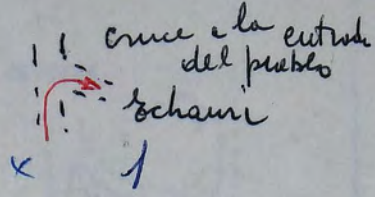 cruce a la entrada
del pueblo
Echauri
x 1